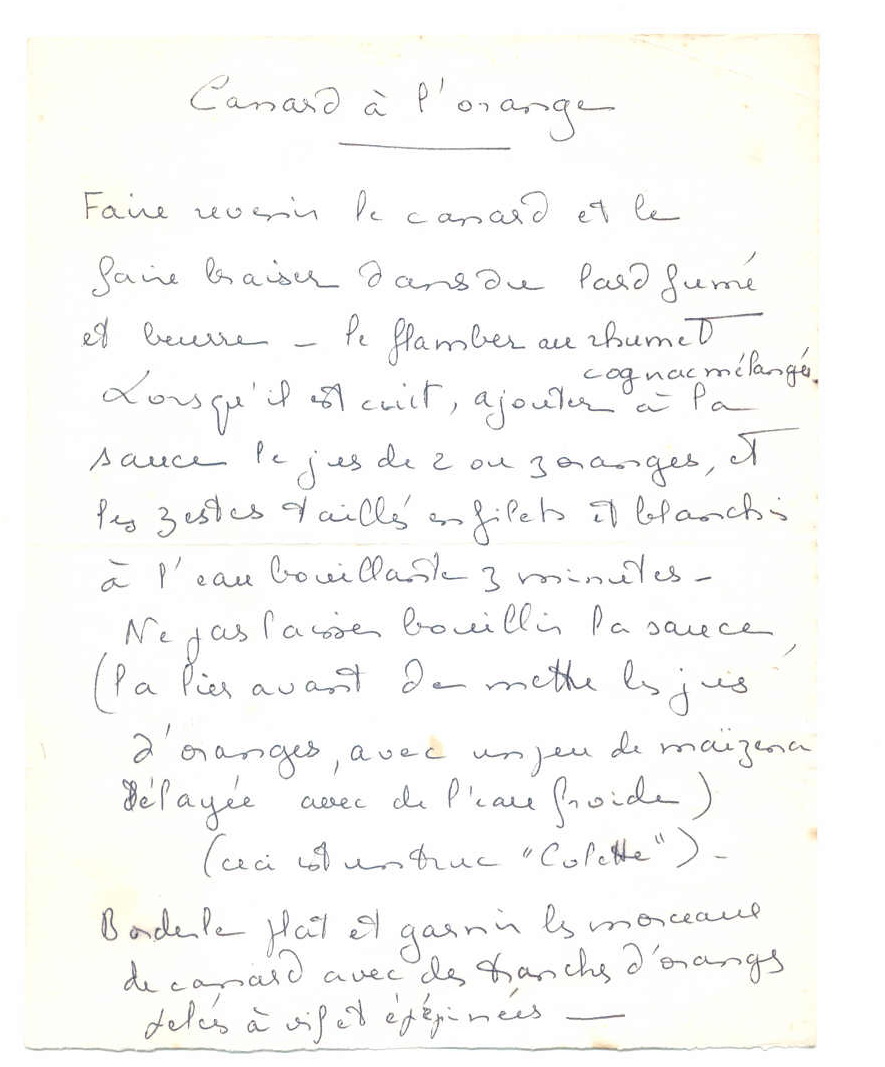 Canard à l'orange
Faire revenir le canard et le
faire braiser dans du lard fumé
et beurre – le flamber au rhum et
cognac mélangés.
Lorsqu'il est cuit, ajouter à la
sauce le jus de 2 ou 3 oranges, et
les zestes taillés en filets et blanchis
à l'eau bouillante 3 minutes –
Ne pas laisser bouillir la sauce,
(la lier avant de mettre les jus
d'oranges, avec un peu de maïzena
délayée avec de l'eau froide)
(ceci est un truc "Colette") –
Border le plat et garnir les morceaux
de canard avec des tranches d'oranges
pelés à vif et épépinées —